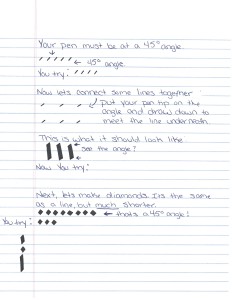 Your pen must be at a 45° angle
← 45° angle
You try:
Now lets connect some lines together
put your pen tip on the
angle and draw down to
meet the line underneath
This is what it should look like:
← see the angle?
Now You try:
Next, lets make diamonds. Its the same
as a line, but much shorter.
← thats a 45° angle!
You try: